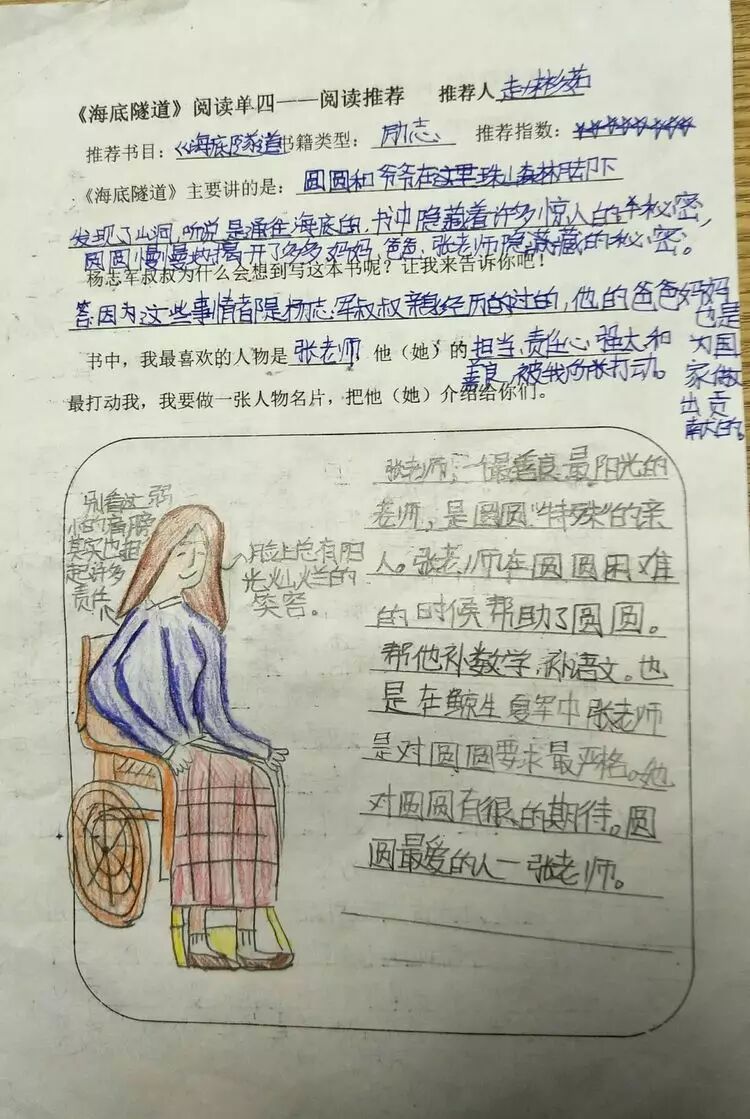 《海底隧道》阅读单四——阅读推荐 推荐人
推荐书目：《海底隧道 书籍类型： 励志 推荐指数：
《海底隧道》主要讲的是：圆圆和爷爷在这里珠山森林脚下
发现了山洞，听说是通往海底的，书中隐藏着许多惊人的秘密，
圆圆慢慢地揭开了多多妈妈、爸爸、张老师隐藏的秘密。
杨志军叔叔为什么会想到写这本书呢？让我来告诉你吧！
答：因为这些事情都是杨志军叔叔亲身经历的过的，他的爸爸妈妈
也是
为国
家做
出贡
献的。
书中，我最喜欢的人物是 张老师 他（她）的担当、责任心、强大和
善良，被我所打动。
最打动我，我要做一张人物名片，把他（她）介绍给你们。
别看这弱
小的肩膀
其实也担
起许多
责任
脸上总有阳
光灿烂的
笑容。
张老师，一个最善良最阳光的
老师，是圆圆“特殊”的亲
人。张老师在圆圆困难
的时候帮助了圆圆。
帮他补数学，补语文。也
是在鲸生夏军中张老师
是对圆圆要求最严格。她
对圆圆有很的期待。圆
圆最爱的人一张老师。